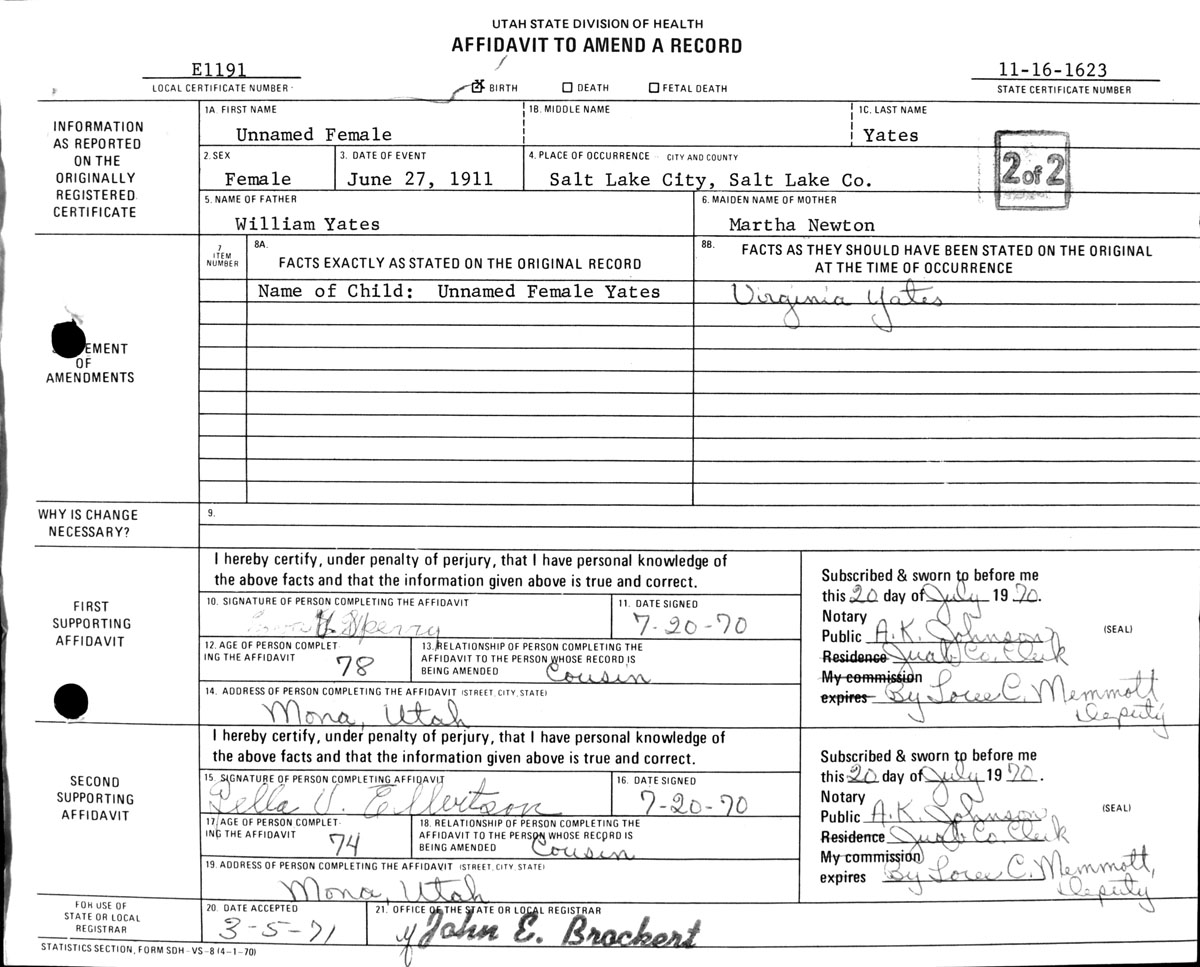 UTAH STATE DIVISION OF HEALTH
AFFIDAVIT TO AMEND A RECORD
E1191
LOCAL CERTIFICATE NUMBER
X BIRTH DEATH FETAL DEATH
11-16-1623
STATE CERTIFICATE NUMBER
INFORMATION
AS REPORTED
ON THE
ORIGINALLY
REGISTERED
CERTIFICATE
1A. FIRST NAME
Unnamed Female
1B. MIDDLE NAME
1C. LAST NAME
Yates
2. SEX
Female
3. DATE OF EVENT
June 27, 1911
4. PLACE OF OCCURRENCE CITY AND COUNTY
Salt Lake City, Salt Lake Co.
2 of 2
5. NAME OF FATHER
William Yates
6. MAIDEN NAME OF MOTHER
Martha Newton
EMENT
OF
AMENDMENTS
7
ITEM
NUMBER
8A.
FACTS EXACTLY AS STATED ON THE ORIGINAL RECORD
8B.
FACTS AS THEY SHOULD HAVE BEEN STATED ON THE ORIGINAL
AT THE TIME OF OCCURRENCE
Name of Child: Unnamed Female Yates
Virginia Yates
WHY IS CHANGE
NECESSARY?
9.
FIRST
SUPPORTING
AFFIDAVIT
I hereby certify, under penalty of perjury, that I have personal knowledge of
the above facts and that the information given above is true and correct.
10. SIGNATURE OF PERSON COMPLETING THE AFFIDAVIT
Y. Sperry
11. DATE SIGNED
7-20-70
12. AGE OF PERSON COMPLET-
ING THE AFFIDAVIT
78
13. RELATIONSHIP OF PERSON COMPLETING THE
AFFIDAVIT TO THE PERSON WHOSE RECORD IS
BEING AMENDED
Cousin
14. ADDRESS OF PERSON COMPLETING THE AFFIDAVIT (STREET, CITY, STATE)
Mona, Utah
Subscribed & sworn to before me
this 20 day of July 19 70.
Notary
Public A.K. Johnson
(SEAL)
Residence Juab Co. Clerk
My commission
expires By Loree C. Memmott
Deputy
SECOND
SUPPORTING
AFFIDAVIT
I hereby certify, under penalty of perjury, that I have personal knowledge of
the above facts and that the information given above is true and correct.
15. SIGNATURE OF PERSON COMPLETING AFFIDAVIT
Della Y. Ellertson
16. DATE SIGNED
7-20-70
17. AGE OF PERSON COMPLET-
ING THE AFFIDAVIT
74
18. RELATIONSHIP OF PERSON COMPLETING THE
AFFIDAVIT TO THE PERSON WHOSE RECORD IS
BEING AMENDED
Cousin
19. ADDRESS OF PERSON COMPLETING THE AFFIDAVIT (STREET, CITY, STATE)
Mona, Utah
Subscribed & sworn to before me
this 20 day of July 19 70.
Notary
Public A.K. Johnson
(SEAL)
Residence Juab Co. Clerk
My commission
expires By Loree C. Memmott,
Deputy
FOR USE OF
STATE OR LOCAL
REGISTRAR
20. DATE ACCEPTED
3-5-71
21. OFFICE OF THE STATE OR LOCAL REGISTRAR
John E. Brockert
STATISTICS SECTION, FORM SDH-VS-8 (4-1-70)